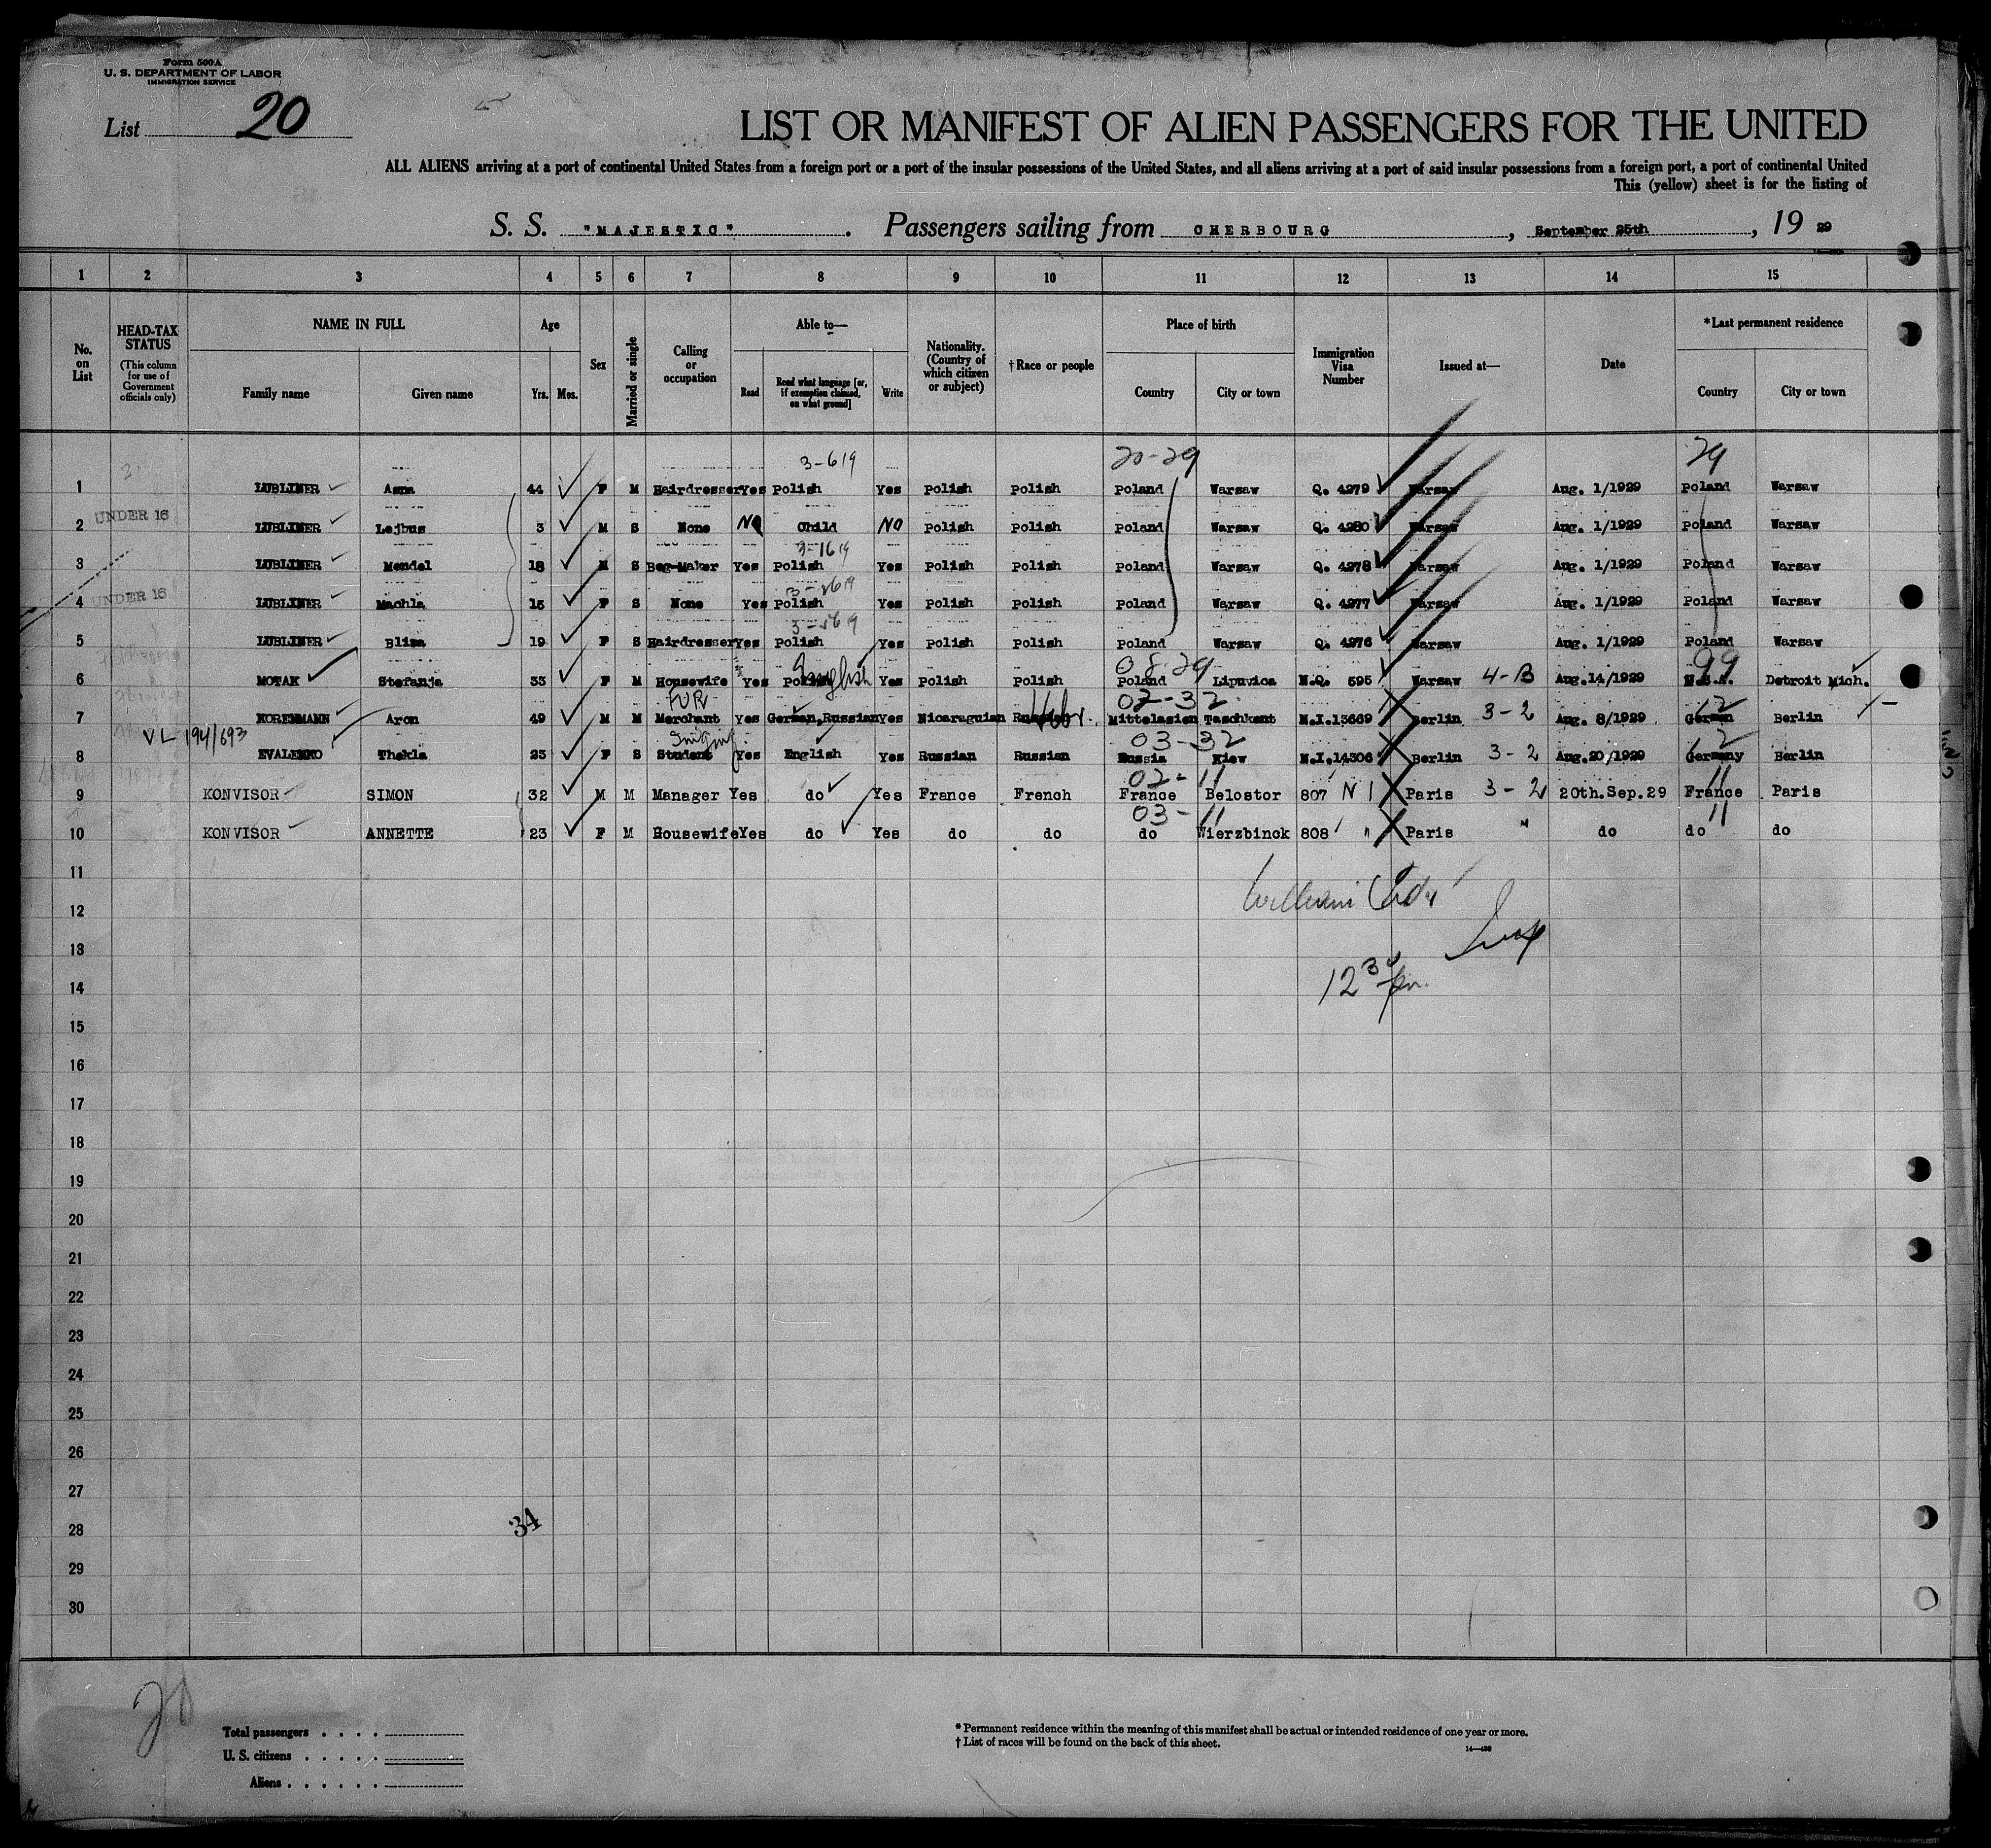 Form 500A
U. S. DEPARTMENT OF LABOR
IMMIGRATION SERVICE
List 20
LIST OR MANIFEST OF ALIEN PASSENGERS FOR THE UNITED
ALL ALIENS arriving at a port of continental United States from a foreign port or a port of the insular possessions of the United States, and all aliens arriving at a port of said insular possessions from a foreign port, a port of continental United
This (yellow) sheet is for the listing of
S. S. "MAJESTIC". Passengers sailing from CHERBOURG, September 25th, 19 29
1 2 3 4 5 6 7 8 9 10 11 12 13 14 15
No. on List
HEAD-TAX STATUS
(This column for use of Government officials only)
NAME IN FULL
Family name Given name
Age
Yrs. Mos.
Sex
Married or single
Calling or occupation
Able to—
Read Read what language [or, if exemption claimed, on what ground] Write
Nationality. (Country of which citizen or subject)
†Race or people
Place of birth
Country City or town
Immigration Visa Number
Issued at—
Date
*Last permanent residence
Country City or town
3-619 20-29 29
1 LUBLINER Asna 44 F M Hairdresser Yes Polish Yes Polish Polish Poland Warsaw Q. 4279 Warsaw Aug. 1/1929 Poland Warsaw
2 UNDER 16 LUBLINER Lejbus 3 M S None NO Child NO Polish Polish Poland Warsaw Q. 4280 Warsaw Aug. 1/1929 Poland Warsaw
3-1619
3 LUBLINER Mendel 18 M S Bag-Maker Yes Polish Yes Polish Polish Poland Warsaw Q. 4278 Warsaw Aug. 1/1929 Poland Warsaw
4 UNDER 16 LUBLINER Machla 15 F S None Yes Polish Yes Polish Polish Poland Warsaw Q. 4277 Warsaw Aug. 1/1929 Poland Warsaw
5 LUBLINER Blima 19 F S Hairdresser Yes Polish Yes Polish Polish Poland Warsaw Q. 4276 Warsaw Aug. 1/1929 Poland Warsaw
English 08 29 99
6 MOTAK Stefanja 33 F M Housewife Yes Polish Yes Polish Polish Poland Lipuvica N.Q. 595 Warsaw 4-B Aug.14/1929 U.S.A. Detroit Mich.
FUR 02-32 12
7 KORENMANN Aron 49 M M Merchant Yes German,Russian Yes Nicaraguian Russian Hebr. Mittelasien Taschkent N.I.13669 Berlin 3-2 Aug. 8/1929 German Berlin
VL 194/693 Singing 03-32 12
8 EVALENKO Thekla 23 F S Student Yes English Yes Russian Russian Russia Kiew N.I.14306 Berlin 3-2 Aug.20/1929 Germany Berlin
02-11 11
9 KONVISOR SIMON 32 M M Manager Yes do Yes France French France Belostor 807 NI Paris 3-2 20th.Sep.29 France Paris
03-11 11
10 KONVISOR ANNETTE 23 F M Housewife Yes do Yes do do do Wierzbinck 808 " Paris " do do do
11
12 William
13
14 12 30 pm.
15
16
17
18
19
20
21
22
23
24
25
26
27
28 34
29
30
20
Total passengers . . . .
U. S. citizens . . . . .
Aliens . . . . . .
* Permanent residence within the meaning of this manifest shall be actual or intended residence of one year or more.
† List of races will be found on the back of this sheet.